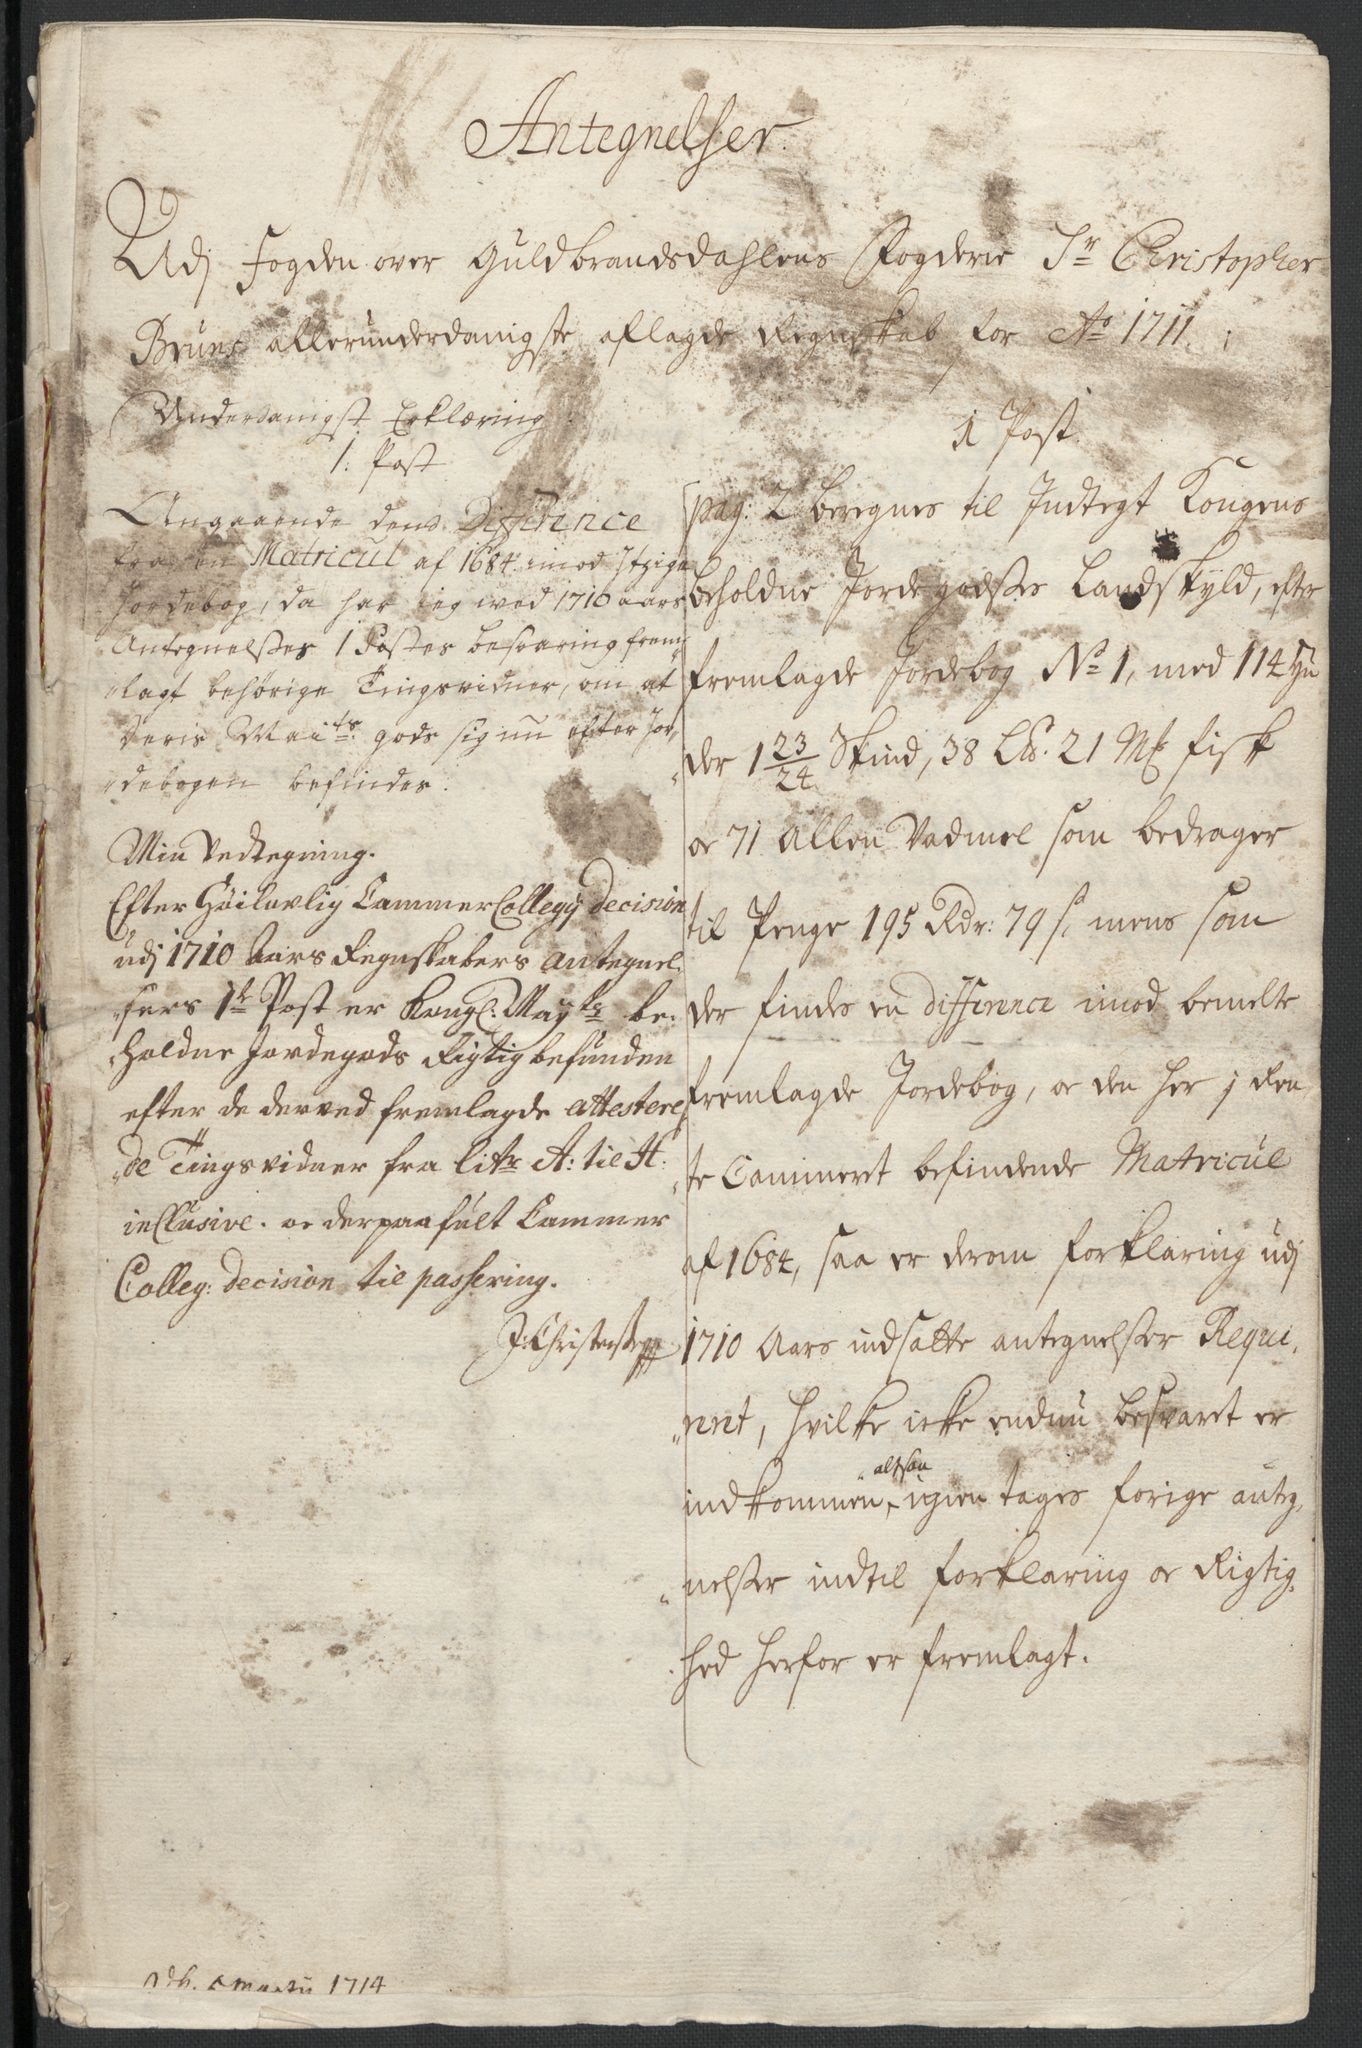 Antegnelser
Udj Fogden over Guldbrandsdahlens Fogderie Sr Christopher
Bruns allerunderdanigste aflagde Regnskab for Ao 1711.
Underdanigst Erklæring
1. Post
Angaaende dend Difference
fra den Matricul af 1684 imod Itzige
Jordebog, da har ieg wed 1710 aars
Antegnelsses 1 Postes besvaring frem„
„lagt behørige Tingsvidner, om at
Deris Maits gods sig nu efter Jor„
„debogen befinder.
Min Vedtegning.
Efter Høilovlig Cammer Collegij decision
udj 1710 Aars Regnskabers Antegnel„
„sers 1te Post er Kongl: Mayts be„
„holdne Jordegods Rigtig befunden
efter de derved fremlagde attestere„
„de Tingsvidner fra litr A: til H:
inclusive. oc derpaa fult Cammer
Colleg: decision til passering.
J: Christensen
1 Post
pag: 2 beregnes til Indtegt Kongens
beholdne Jordegodsses Landskyld, efter
fremlagde Jordebog No 1, med 114 Hu
der 1 23/24 Skind, 38 L℔. 21 Mk fisk
oc 71 Allen Vadmel som bedrager
til Penge 195 Rdr: 79 s, mens som
der findes en difference imod bemelte
fremlagde Jordebog, oc den her j Ren
„te Cammeret befindende Matricul
af 1684, saa er derom forklaring udj
1710 Aars indsatte antegnelsser Reqvi„
„rert, hvilke icke endnu besvaret er
indkommen, altsaa igien tages forige anteg„
„nelsser indtil forklaring oc Rigtig„
„hed herfor er fremlagt.
1714